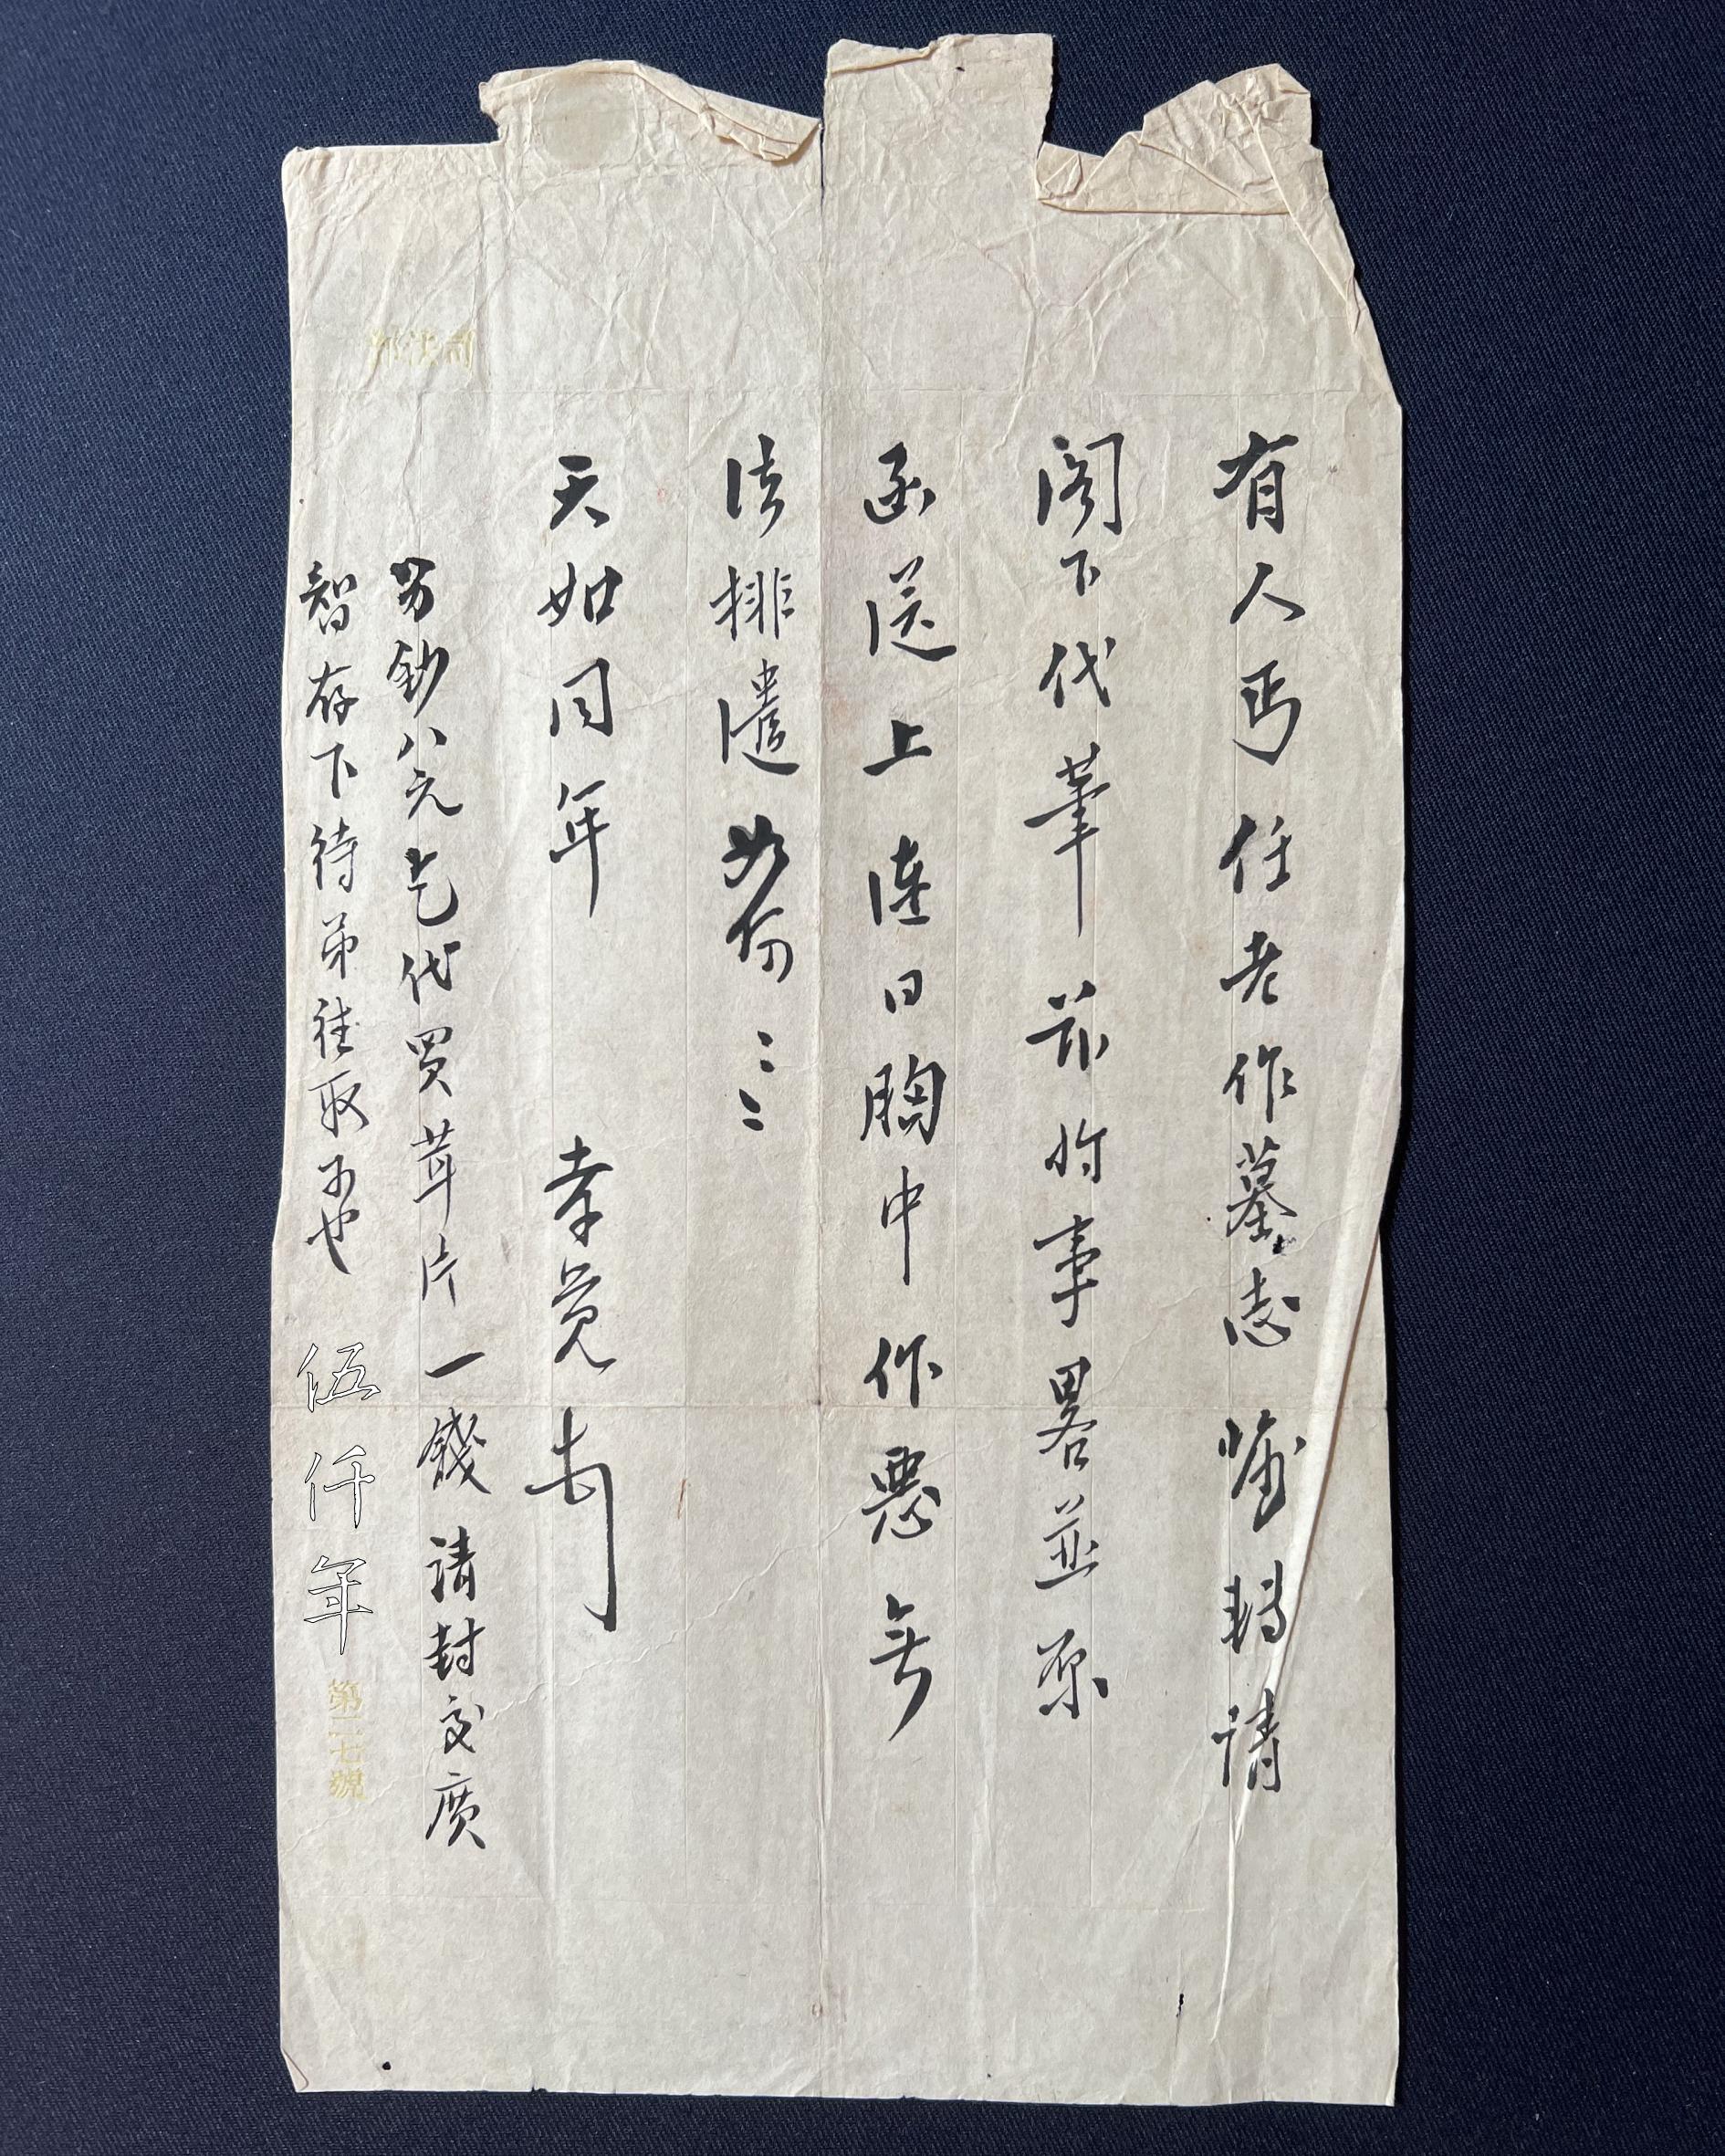 有人丐任老作墓志 擬轉請
閣下代筆 茲將事畧並原
函送上 連日胸中作惡 無
法排遣 如何﹕﹕
天如同年
孝覺 

另鈔八元乞代買茸片一錢請封交廣
智存下待弟往取可也
伍仟年
第二七號